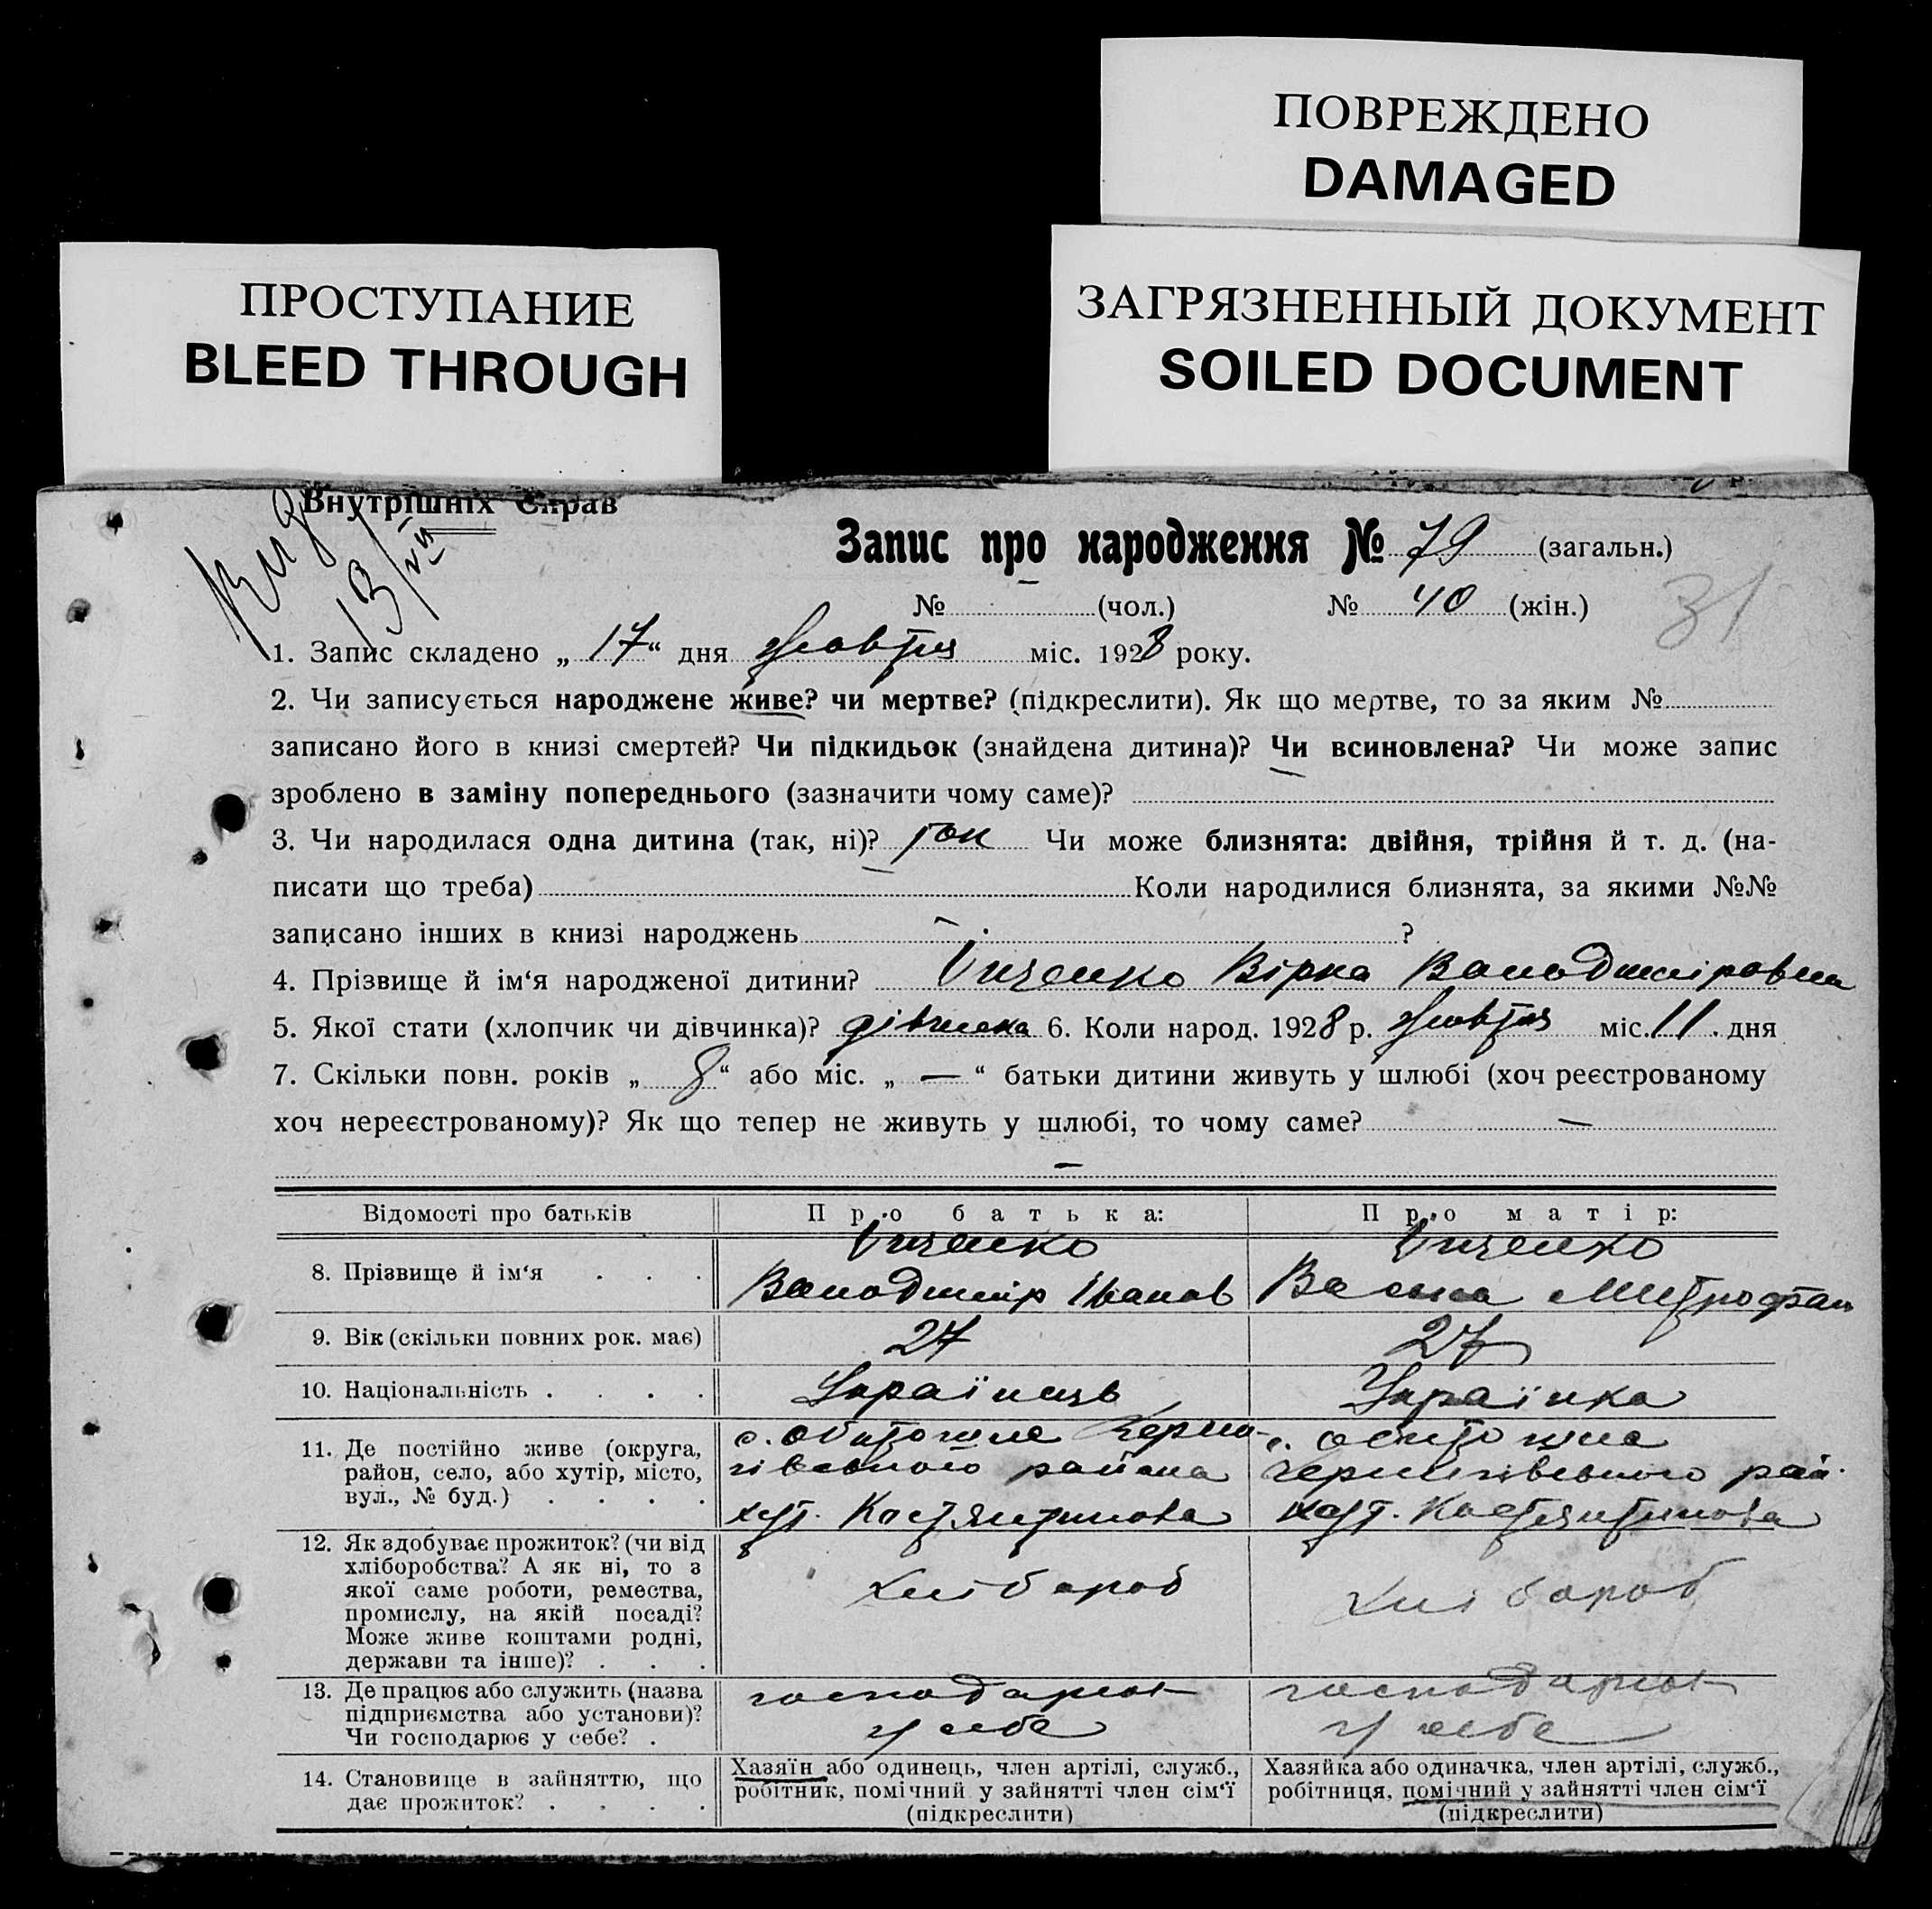 ПОВРЕЖДЕНО
DAMAGED
ПРОСТУПАНИЕ
BLEED THROUGH
ЗАГРЯЗНЕННЫЙ ДОКУМЕНТ
SOILED DOCUMENT
Внутрішніх Справ
13/VII
Запис про народження № 79 (загальн.)
№ — (чол.) № 40 (жін.)
31
1. Запис складено „ 17 “ дня жовтня міс. 1928 року.
2. Чи записується народжене живе? чи мертве? (підкреслити). Як що мертве, то за яким №
записано його в книзі смертей? Чи підкидьок (знайдена дитина)? Чи всиновлена? Чи може запис
зроблено в заміну попереднього (зазначити чому саме)? —
3. Чи народилася одна дитина (так, ні)? так Чи може близнята: двійня, трійня й т. д. (на-
писати що треба) — Коли народилися близнята, за якими №№
записано інших в книзі народжень — ?
4. Прізвище й ім‘я народженої дитини? Вірка Володимировна
5. Якої стати (хлопчик чи дівчинка)? дівчинка 6. Коли народ. 1928 р. жовтня міс. 11 . дня
7. Скільки повн. років „ 8 “ або міс. „ — “ батьки дитини живуть у шлюбі (хоч реєстрованому
хоч нереєстрованому)? Як що тепер не живуть у шлюбі, то чому саме? —
—
Відомості про батьків Про батька: Про матір:
8. Прізвище й ім‘я . . .
Володимір Іванов
Митрофан
9. Вік (скільки повних рок. має) 27 27
10. Національність . . . . Українець Українка
11. Де постійно живе (округа,
район, село, або хутір, місто,
вул., № буд.) . . . .
Черни-
гівського района
хут. Костянтинова
чернигівського рай.
хут. Костянтинова
12. Як здобуває прожиток? (чи від
хліборобства? А як ні, то з
якої саме роботи, ремества,
промислу, на якій посаді?
Може живе коштами родні,
держави та інше)? . . .
хлібороб
хлібороб
13. Де працює або служить (назва
підприємства або установи)?
Чи господарює у себе? .
господарює
у себе
господарює
у себе
14. Становище в зайняттю, що
дає прожиток? . . . .
Хазяїн або одинець, член артілі, служб.,
робітник, помічний у зайнятті член сім‘ї
(підкреслити)
Хазяйка або одиначка, член артілі, служб.,
робітниця, помічний у зайнятті член сім‘ї
(підкреслити)